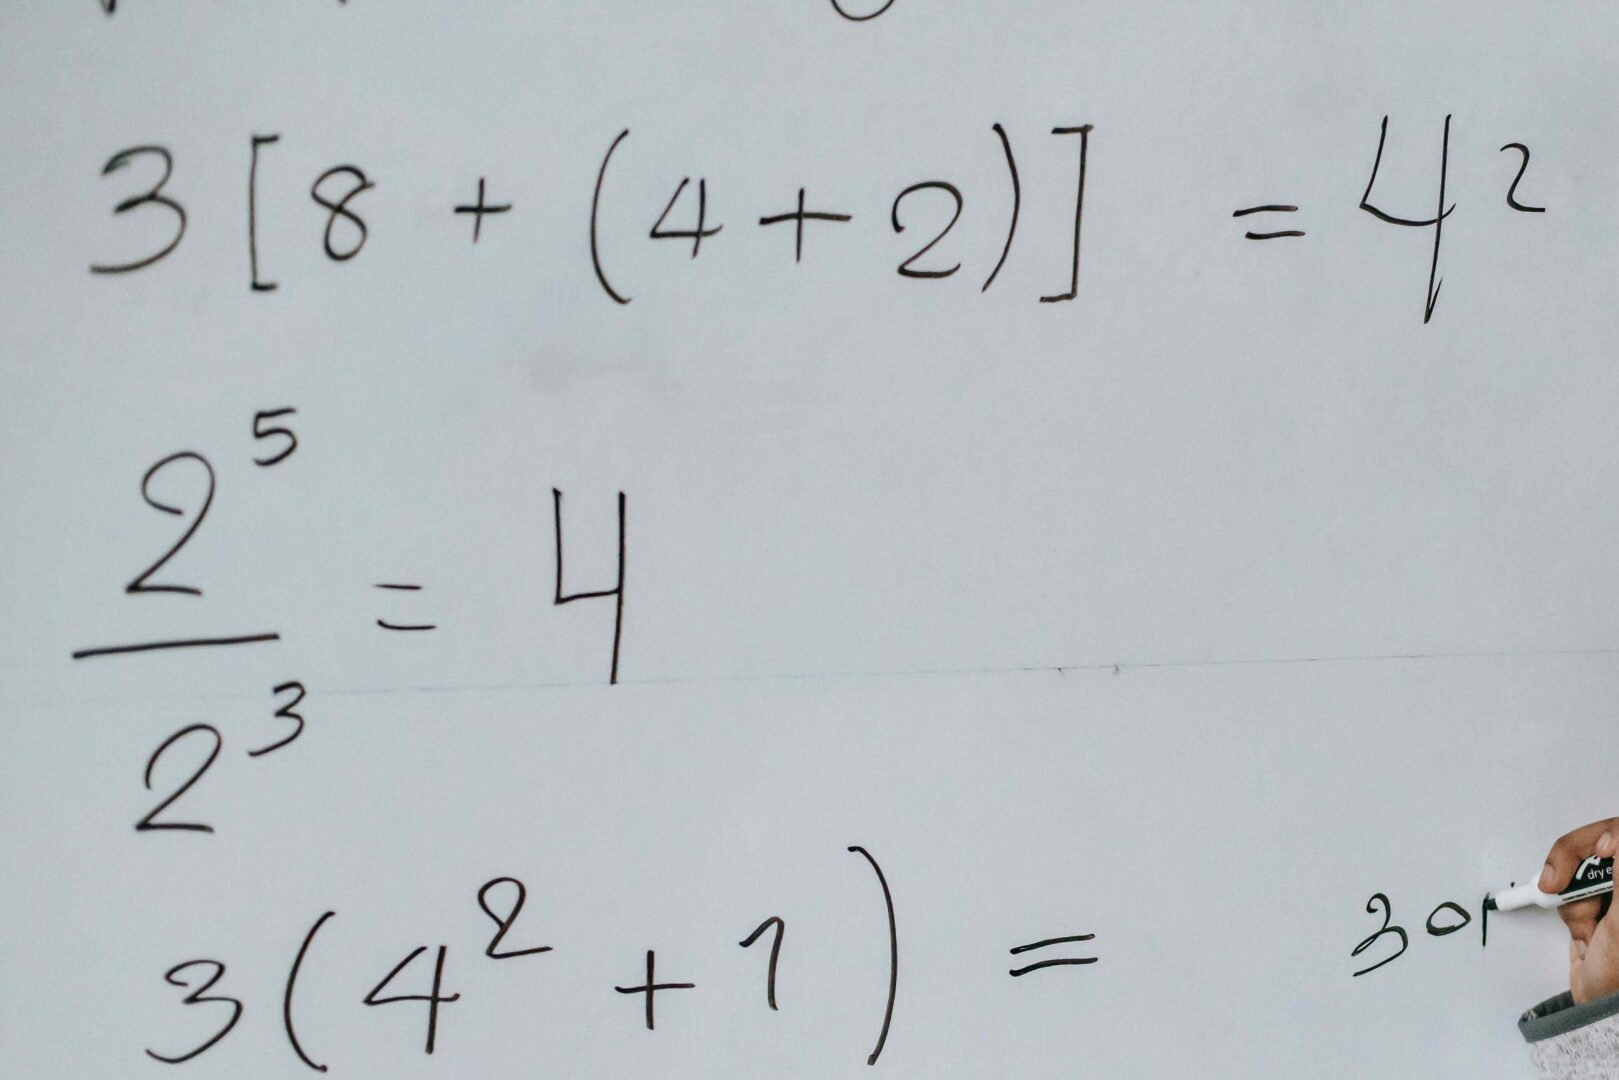 3 [ 8 + ( 4 + 2 ) ] = 4²
2⁵
= 4
2³
3 ( 4² + 1 ) = 30
dry e